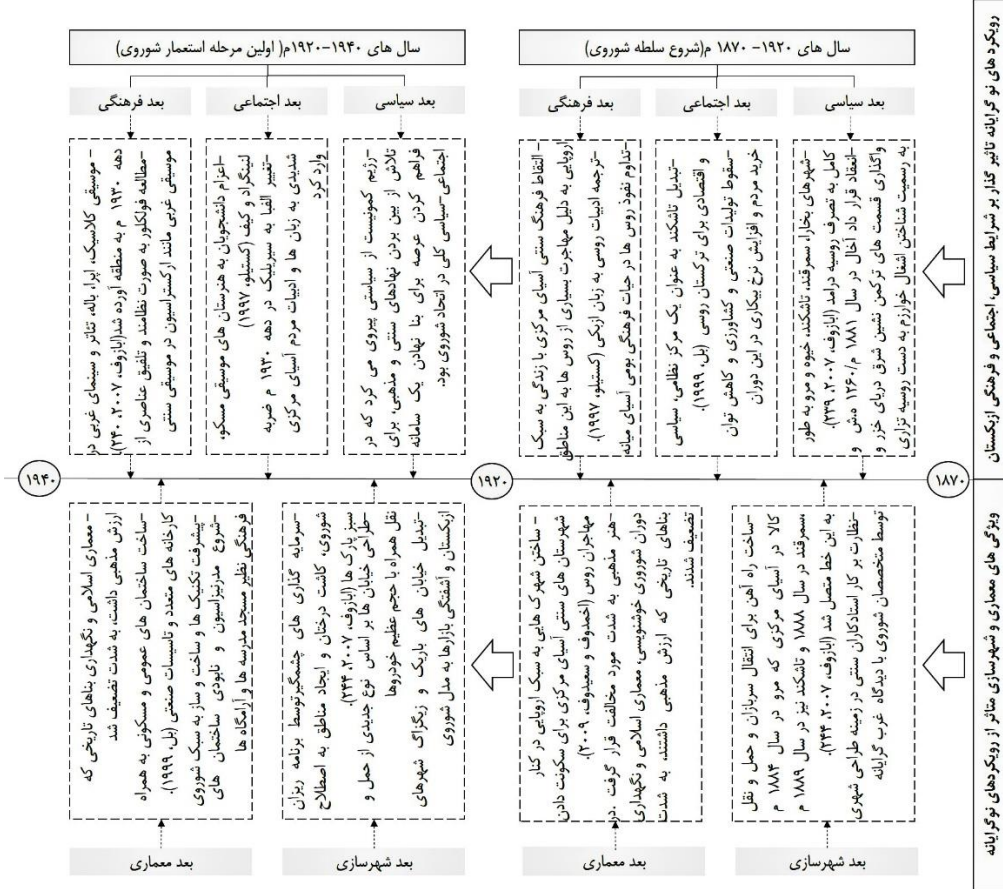 رویکرد های نو گرایانه تاثیر گذار بر شرایط سیاسی، اجتماعی و فرهنگی ازبکستان
سال های ۱۹۲۰- ۱۸۷۰ م(شروع سلطه شوروی)
بعد سیاسی
-شهرهای بخارا، سمرقند، تاشکند، خیوه و مرو به طور
کامل به تصرف روسیه درامد (ابازوف، ۲۰۰۷، ۲۳۹).
-انعقاد قرار داد آخال در سال ۱۸۸۱ م/۱۲۶۰ ه.ش و
واگذاری قسمت های ترکمن نشین شرق دریای خزر و
به رسمیت شناختن اشغال خوارزم به دست روسیه تزاری
بعد اجتماعی
-تبدیل تاشکند به عنوان یک مرکز نظامی، سیاسی
و اقتصادی برای ترکستان روسی (بل، ۱۹۹۹).
-سقوط تولیدات صنعتی و کشاورزی و کاهش توان
خرید مردم و افزایش نرخ بیکاری در این دوران
بعد فرهنگی
- التقاط فرهنگ سنتی آسیای مرکزی با زندگی به سبک
اروپایی به دلیل مهاجرت بسیاری از روس ها به این مناطق
-ترجمه ادبیات روسی به زبان ازبکی (کستیلو، ۱۹۹۷).
-تداوم نفوذ روس ها در حیات فرهنگی بومی آسیای میانه
سال های ۱۹۴۰-۱۹۲۰م( اولین مرحله استعمار شوروی)
بعد سیاسی
-رژیم کمونیست از سیاستی پیروی می کرد که در
تلاش از بین بردن نهادهای سنتی و مذهبی، برای
فراهم کردن عرصه برای بنا نهادن یک سامانه
اجتماعی-سیاسی کلی در اتحاد شوروی بود.
بعد اجتماعی
-اعزام دانشجویان به هنرستان های موسیقی مسکو،
لنینگراد و کیف (کستیلو، ۱۹۹۷)
-تغییر الفبا به سیریلیک در دهه ۱۹۳۰ م ضربه
شدیدی به زبان ها و ادبیات مردم آسیای مرکزی
وارد کرد
بعد فرهنگی
- موسیقی کلاسیک، اپرا، باله، تئاتر و سینمای غربی در
دهه ۱۹۳۰ م به منطقه آورده شد(ابازوف، ۲۰۰۷، ۲۴۰).
-مطالعه فولکلور به صورت نظامند و تلفیق عناصری از
موسیقی غربی مانند ارکستراسیون در موسیقی سنتی
۱۸۷۰
۱۹۲۰
۱۹۴۰
ویژگی های معماری و شهرسازی متاثر از رویکردهای نوگرایانه
-ساخت راه آهن برای انتقال سربازان و حمل و نقل
کالا در آسیای مرکزی که مرو در سال ۱۸۸۴ م
،سمرقند در سال ۱۸۸۸ و تاشکند نیز در سال ۱۸۸۹ م
به این خط متصل شد (ابازوف، ۲۰۰۷، ۲۴۴).
-نظارت بر کار استادکاران سنتی در زمینه طراحی شهری
توسط متخصصان شوروی با دیدگاه غرب گرایانه
بعد شهرسازی
- ساختن شهرک هایی به سبک اروپایی در کنار
شهرستان های سنتی آسیای مرکزی برای سکونت دادن
مهاجران روس (احمدوف و سعیدوف، ۲۰۰۹).
-هنر مذهبی به شدت مورد مخالفت قرار گرفت .در
دوران شوروری خوشنویسی، معماری اسلامی و نگهداری
بناهای تاریخی که ارزش مذهبی داشتند، به شدت
تضعیف شدند.
بعد معماری
-سرمایه گذاری های چشمگیرتوسط برنامه ریزان
شوروی، کاشت درختان و ایجاد مناطق به اصطلاح
سبز پارک ها (ابازوف، ۲۰۰۷، ۲۴۴).
-طراحی خیابان ها بر اساس نوع جدیدی از حمل و
نقل همراه با حجم عظیم خودروها
-تبدیل خیابان های باریک و زیگزاگ شهرهای
ازبکستان و آشفتگی بازارها به مدل شوروی
بعد شهرسازی
- معماری اسلامی و نگهداری بناهای تاریخی که
ارزش مذهبی داشت، به شدت تضعیف شد
-ساخت ساختمان های عمومی و مسکونی به همراه
کارخانه های متعدد و تاسیسات صنعتی (بل، ۱۹۹۹).
-پیشرفت تکنیک ها و ساخت و ساز به سبک شوروی
-شروع مدرنیزاسیون و نابودی ساختمان های
فرهنگی نظیر مسجد مدرسه ها و آرامگاه ها
بعد معماری